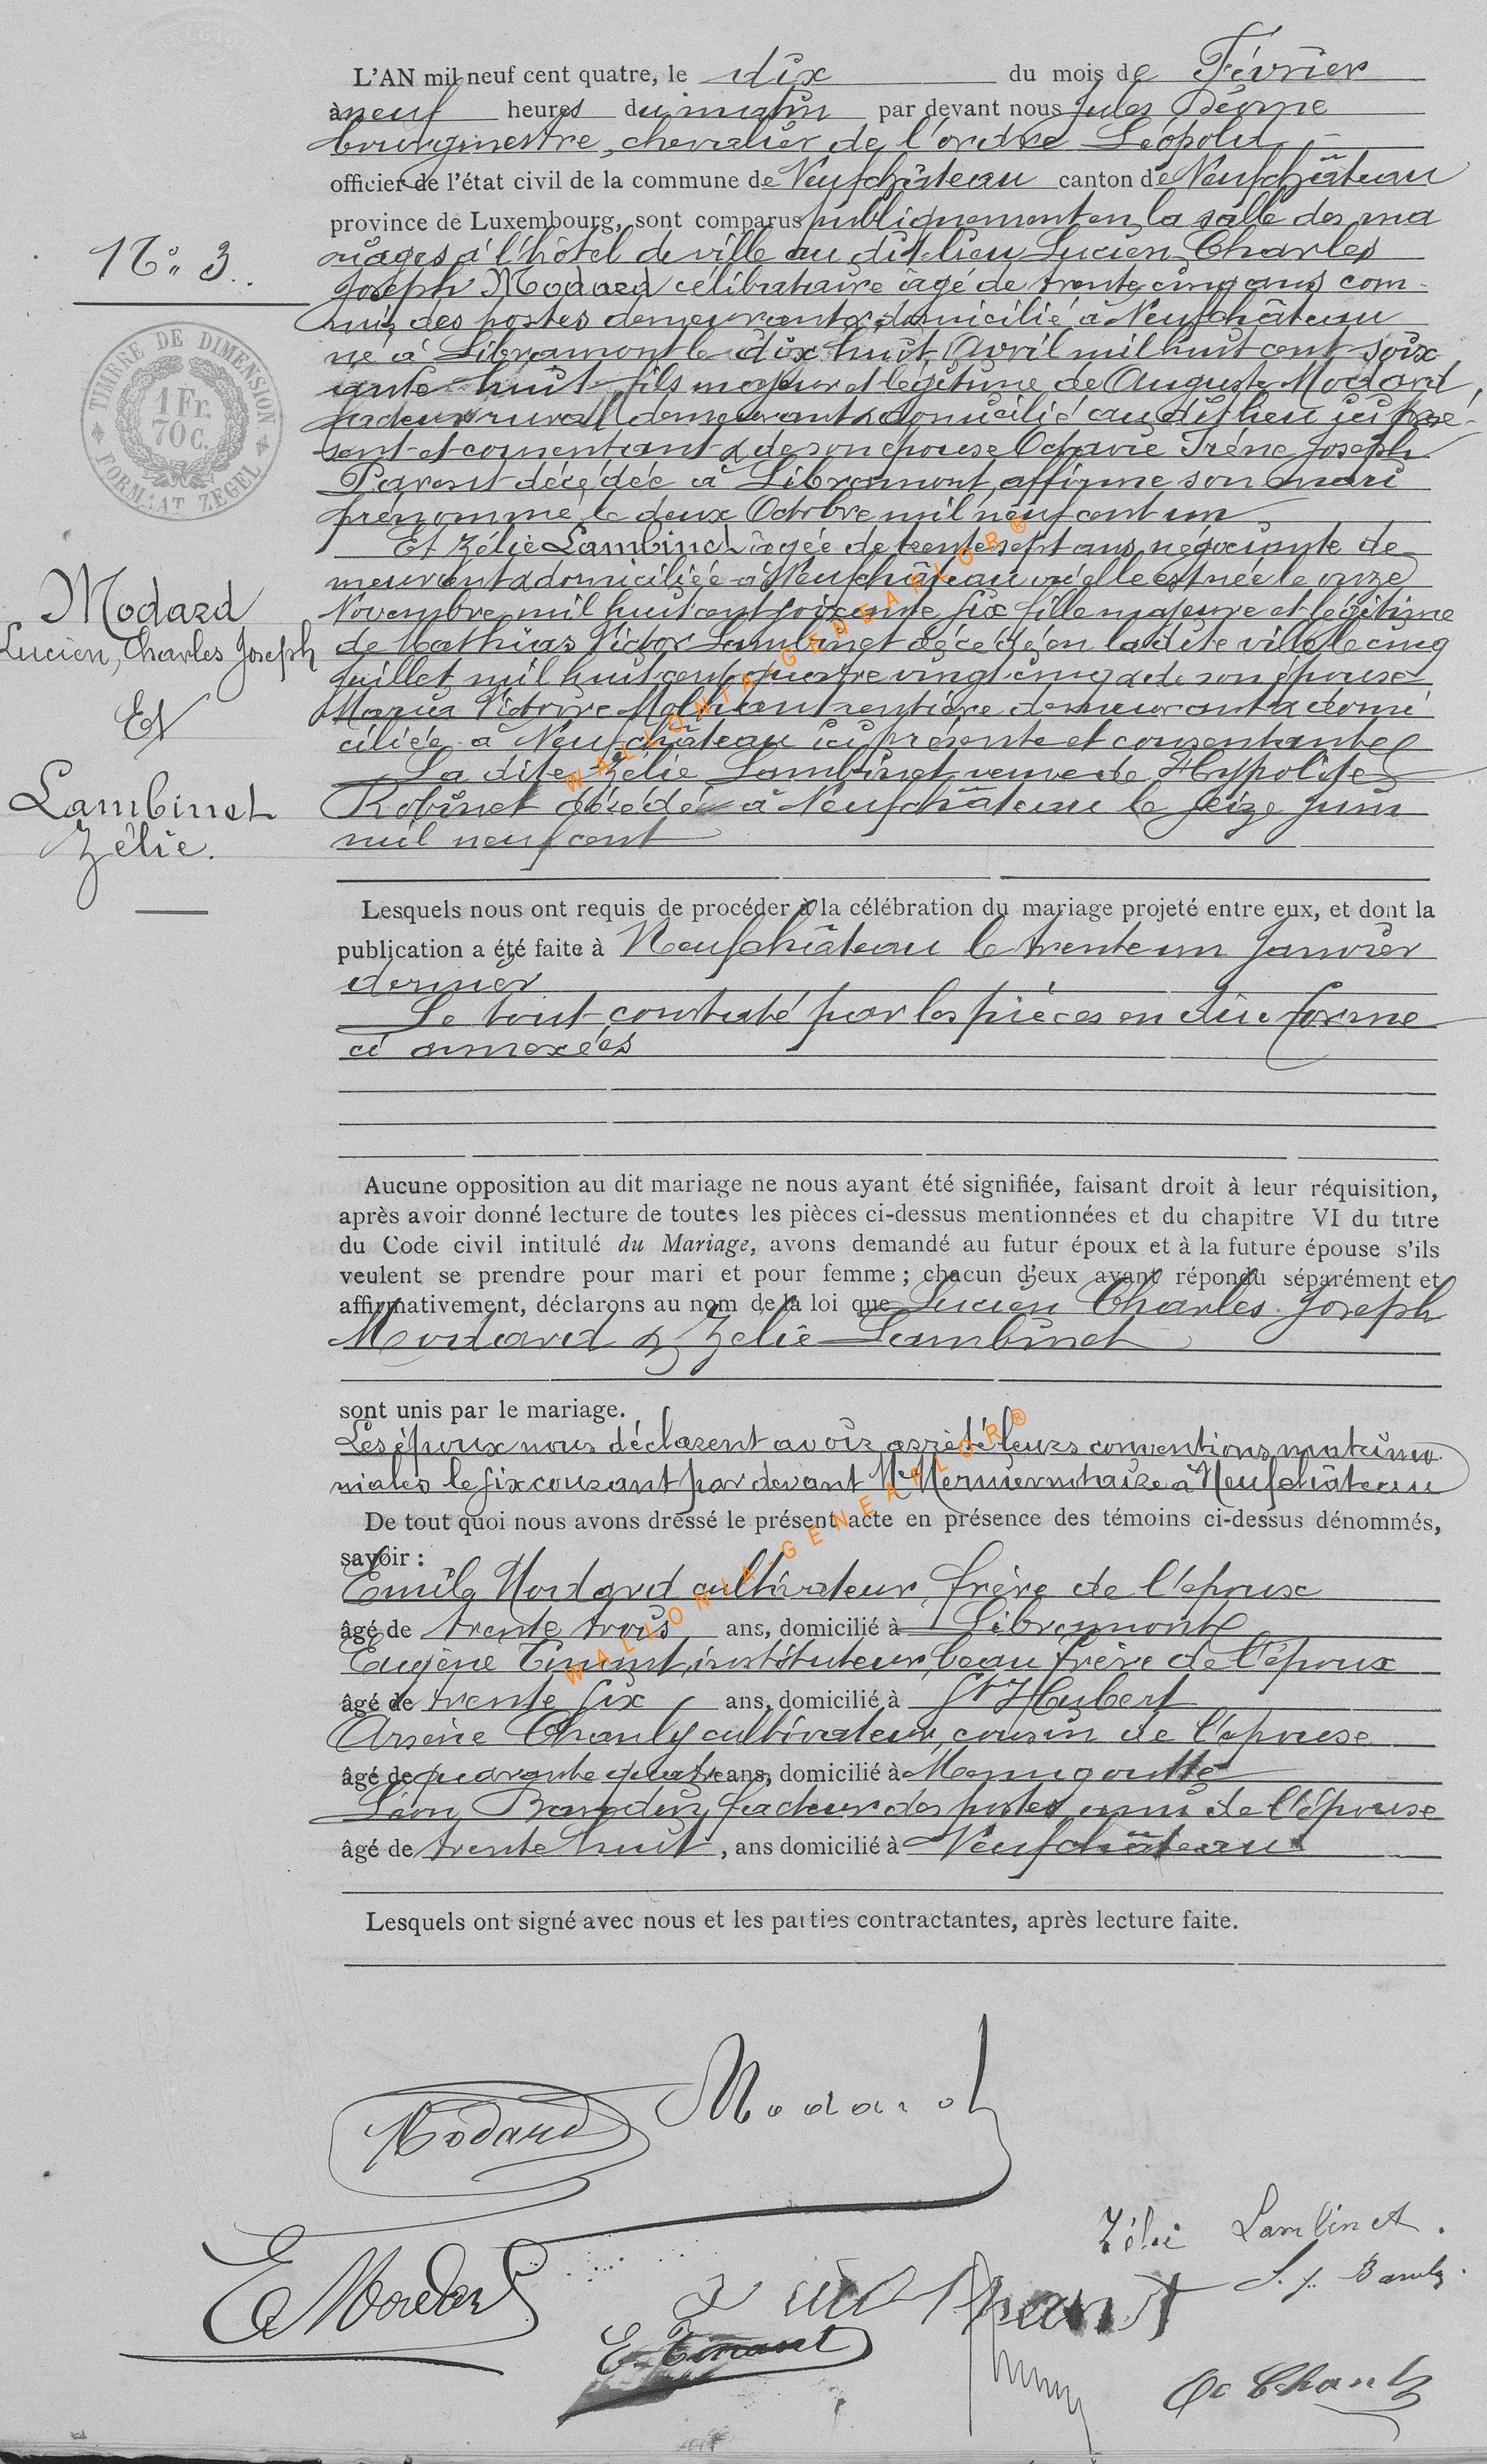 L'AN mil neuf cent quatre, le dix du mois de Février
à neuf heures du matin par devant nous Jules
bourgmestre, chevalier de l'ordre Léopold
officier de l'état civil de la commune de Neufchâteau canton de Neufchâteau
province de Luxembourg, sont comparus publiquement en la salle des ma
N° 3.
riages à l'hôtel de ville au dit lieu Lucien Charles
Joseph Modard célibataire âgé de trente cinq ans com-
mis des postes demeurant & domicilié à Neufchâteau
né à Libramont le dix huit Avril mil huit cent soix
TIMBRE DE DIMENSION
1 Fr.
70 C.
FORMAAT ZEGEL
ante huit fils majeur et légitime de Auguste Modard,
facteur rural demeurant & domicilié au dit lieu ici pré-
sent et consentant & de son épouse Octavie Irène Joseph
Parent décédée à Libramont, affirme son mari
prénommé le deux Octobre mil neuf cent un
Et Zélie Lambinet âgée de trente sept ans, négociante de
meurant & domiciliée à Neufchâteau où elle est née le onze
Novembre mil huit cent soixante six fille majeure et légitime
de Mathias Victor Lambinet décédé en la dite ville le cinq
Juillet mil huit cent quatre vingt cinq & de son épouse
Maria Victoire rentière demeurant & domi
ciliée à Neufchâteau ici présente et consentante
La dite Zélie Lambinet veuve de Hypolite
Robinet décédé à Neufchâteau le seize Juin
mil neuf cent
Modard
Lucien, Charles Joseph
Et
Lambinet
Zélie.
WALLONIA-GENEAFLOR®
Lesquels nous ont requis de procéder à la célébration du mariage projeté entre eux, et dont la
publication a été faite à Neufchâteau le trente un Janvier
dernier
Le tout constaté par les pièces en due forme
ci annexées
Aucune opposition au dit mariage ne nous ayant été signifiée, faisant droit à leur réquisition,
après avoir donné lecture de toutes les pièces ci-dessus mentionnées et du chapitre VI du titre
du Code civil intitulé du Mariage, avons demandé au futur époux et à la future épouse s'ils
veulent se prendre pour mari et pour femme ; chacun d'eux ayant répondu séparément et
affirmativement, déclarons au nom de la loi que Lucien Charles Joseph
Modard & Zélie Lambinet
sont unis par le mariage.
Les époux nous déclarent avoir arrêté leurs conventions matrimo
niales le six courant par devant Me notaire à Neufchâteau
WALLONIA-GENEAFLOR®
De tout quoi nous avons dressé le présent acte en présence des témoins ci-dessus dénommés,
savoir :
Emile Modard cultivateur frère de l'époux
âgé de trente trois ans, domicilié à Libramont
Eugène Tinant, instituteur, beau frère de l'époux
âgé de trente six ans, domicilié à St Hubert
Arsène cultivateur, cousin de l'épouse
âgé de quarante quatre ans, domicilié à
Léon facteur des postes, ami de l'épouse
âgé de trente huit, ans domicilié à Neufchâteau
Lesquels ont signé avec nous et les parties contractantes, après lecture faite.
Modard
Modard
Zélie Lambinet.
E Modard
E. Tinant